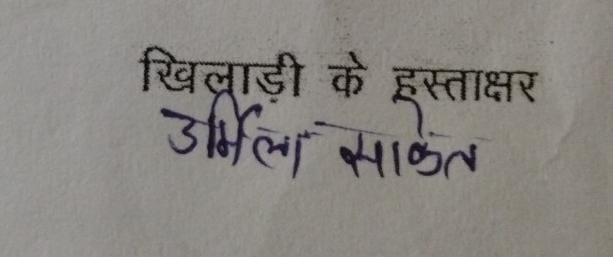 खिलाड़ी के हस्ताक्षर
उर्मिला साकेत